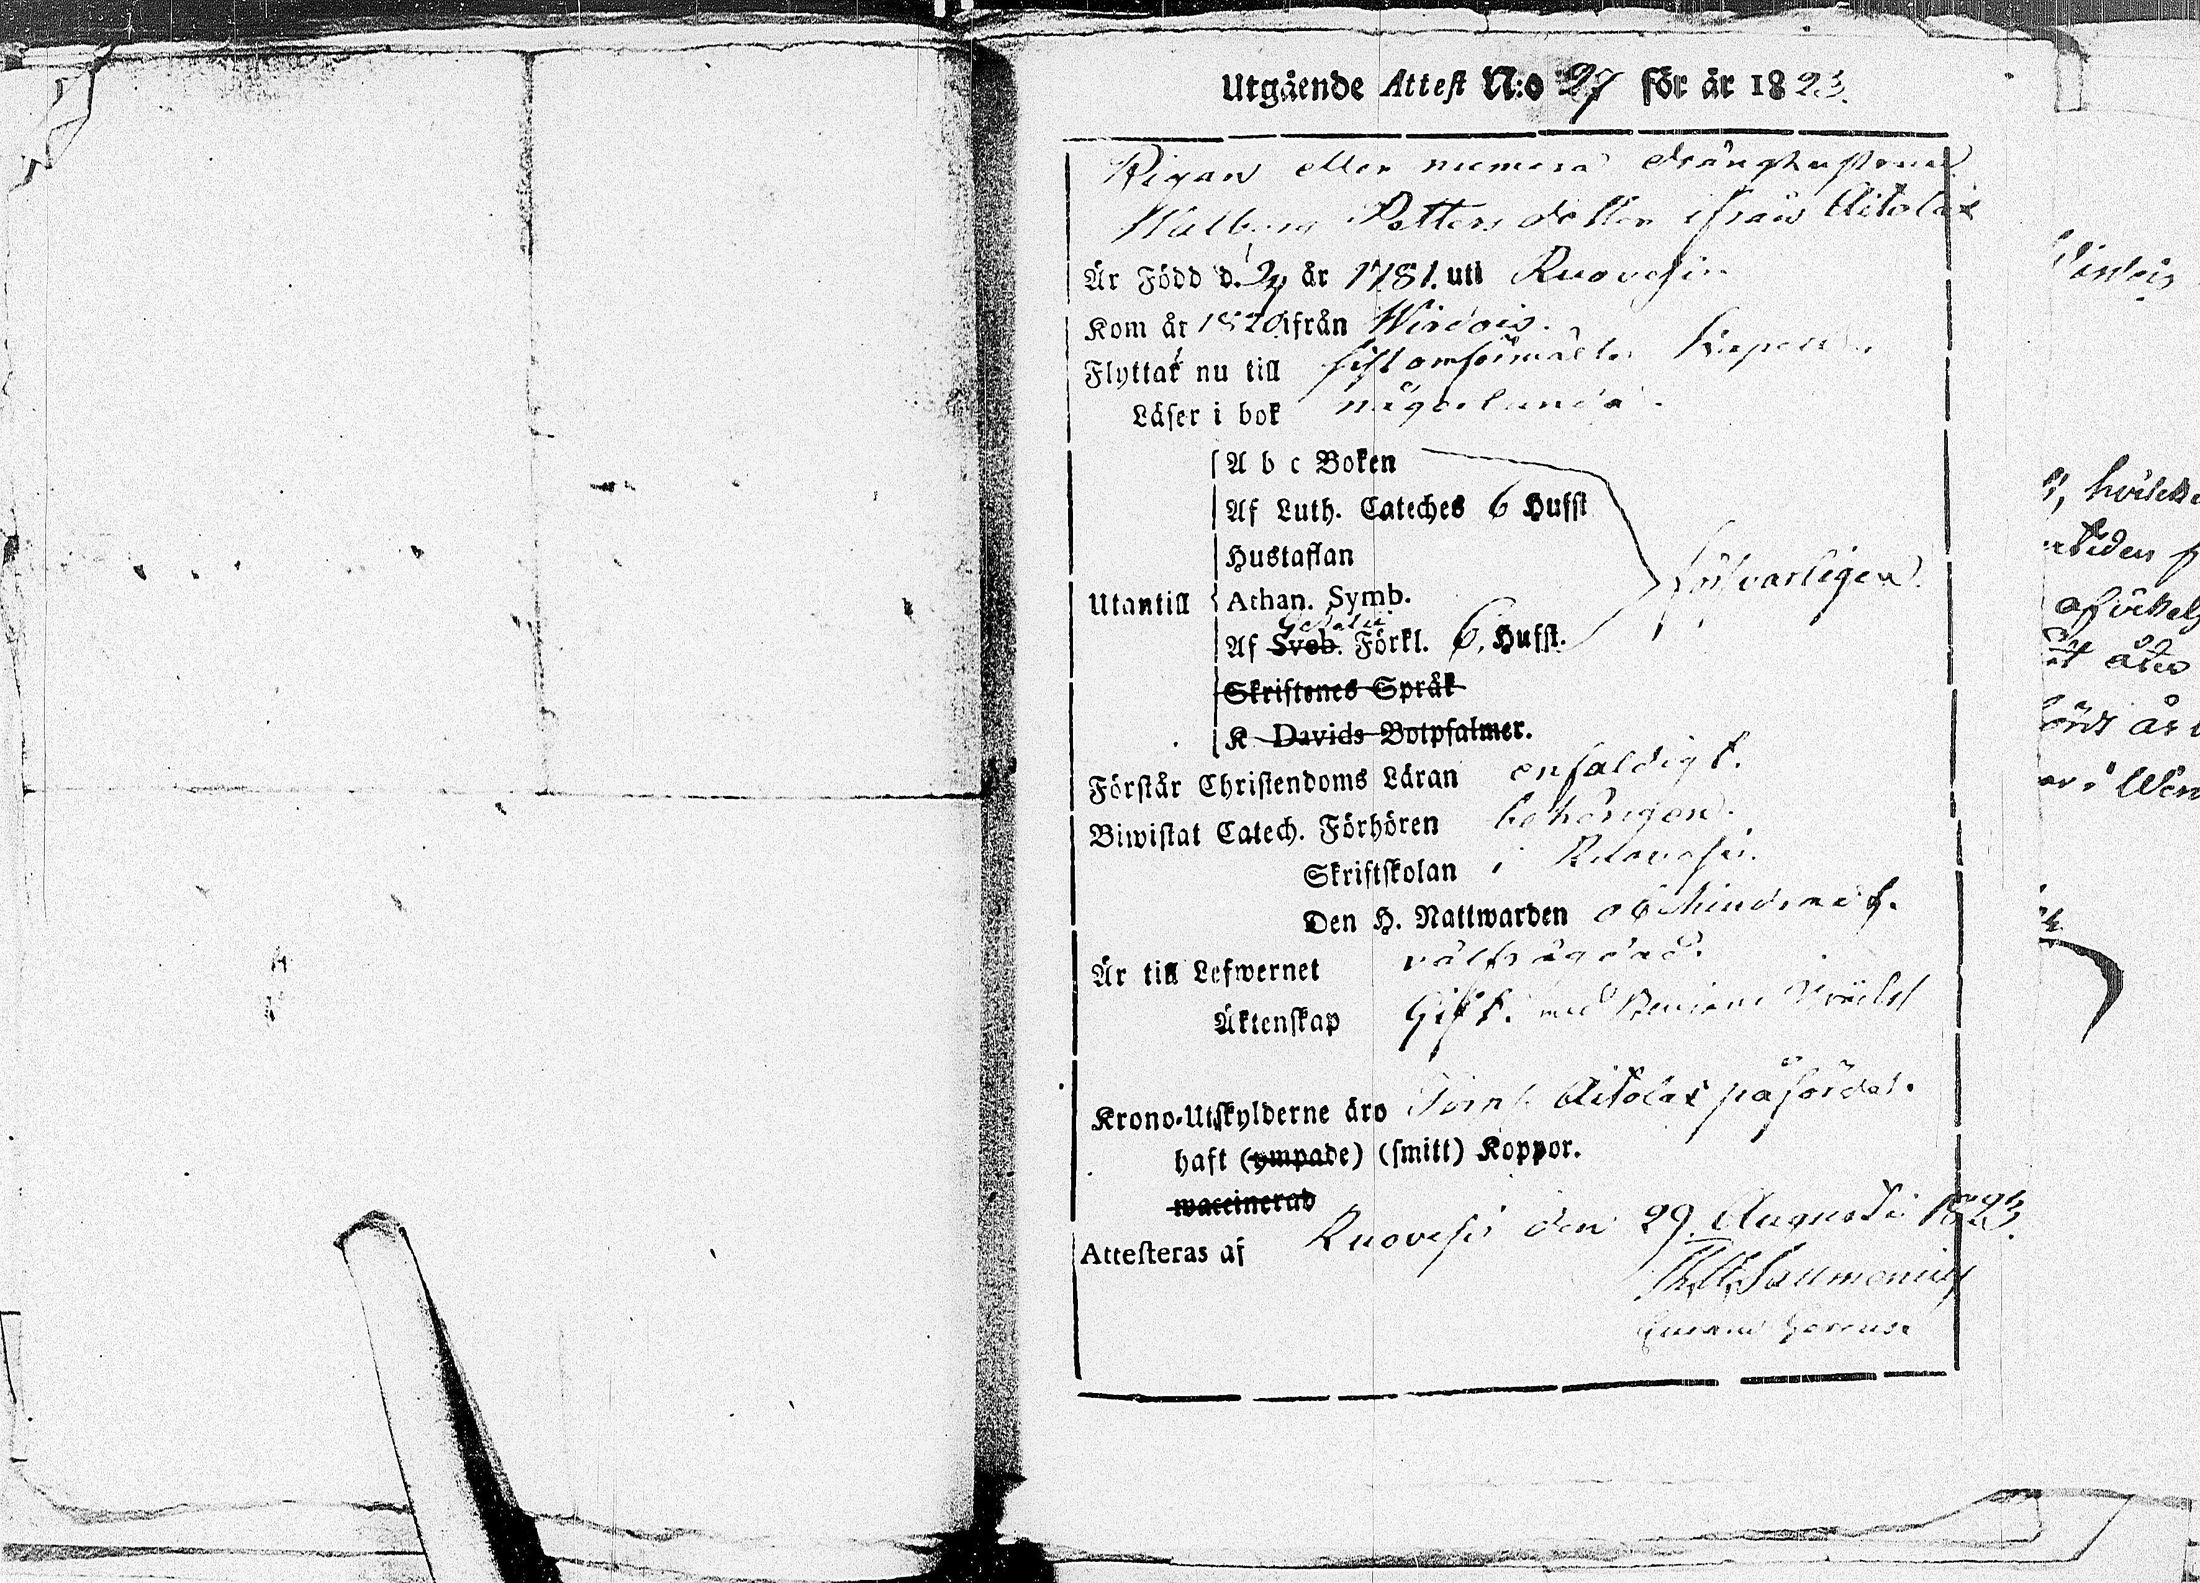 Utgående Attest N:o 27 för år 1823.
Pigan eller numera dränghustrun
Walborg Petters dotter ifrån Aitolax
Är Född d. år 1781. uti Ruovesi
Kom år 1820 ifrån Wirdois.
Flyttar nu till sistomförmälte
Läser i bok någorlunda.
A b c Boken
Af Luth. Cateches 6 Hufst
Hustaflan
Utantill Athan. Symb. försvarligen.
Af Sveb. Förkl. 6. Hufst.
Skriftenes Språk
K Davids Botpsalmer.
Förstår Christendoms Läran enfaldigt.
Biwistat Catech. Förhören behörigen.
Skriftskolan i Ruovesi.
Den H. Nattwarden obehindradt.
Är till Lefwernet välfrägdad.
Äktenskap Gift. med
Krono-Utskylderne äro Aitolax påförde.
haft (ympade) (smitt) Koppor.
waccinerad
Attesteras af Ruovesi den 29. Augusti 1823.
Salmenius
afvikels
år